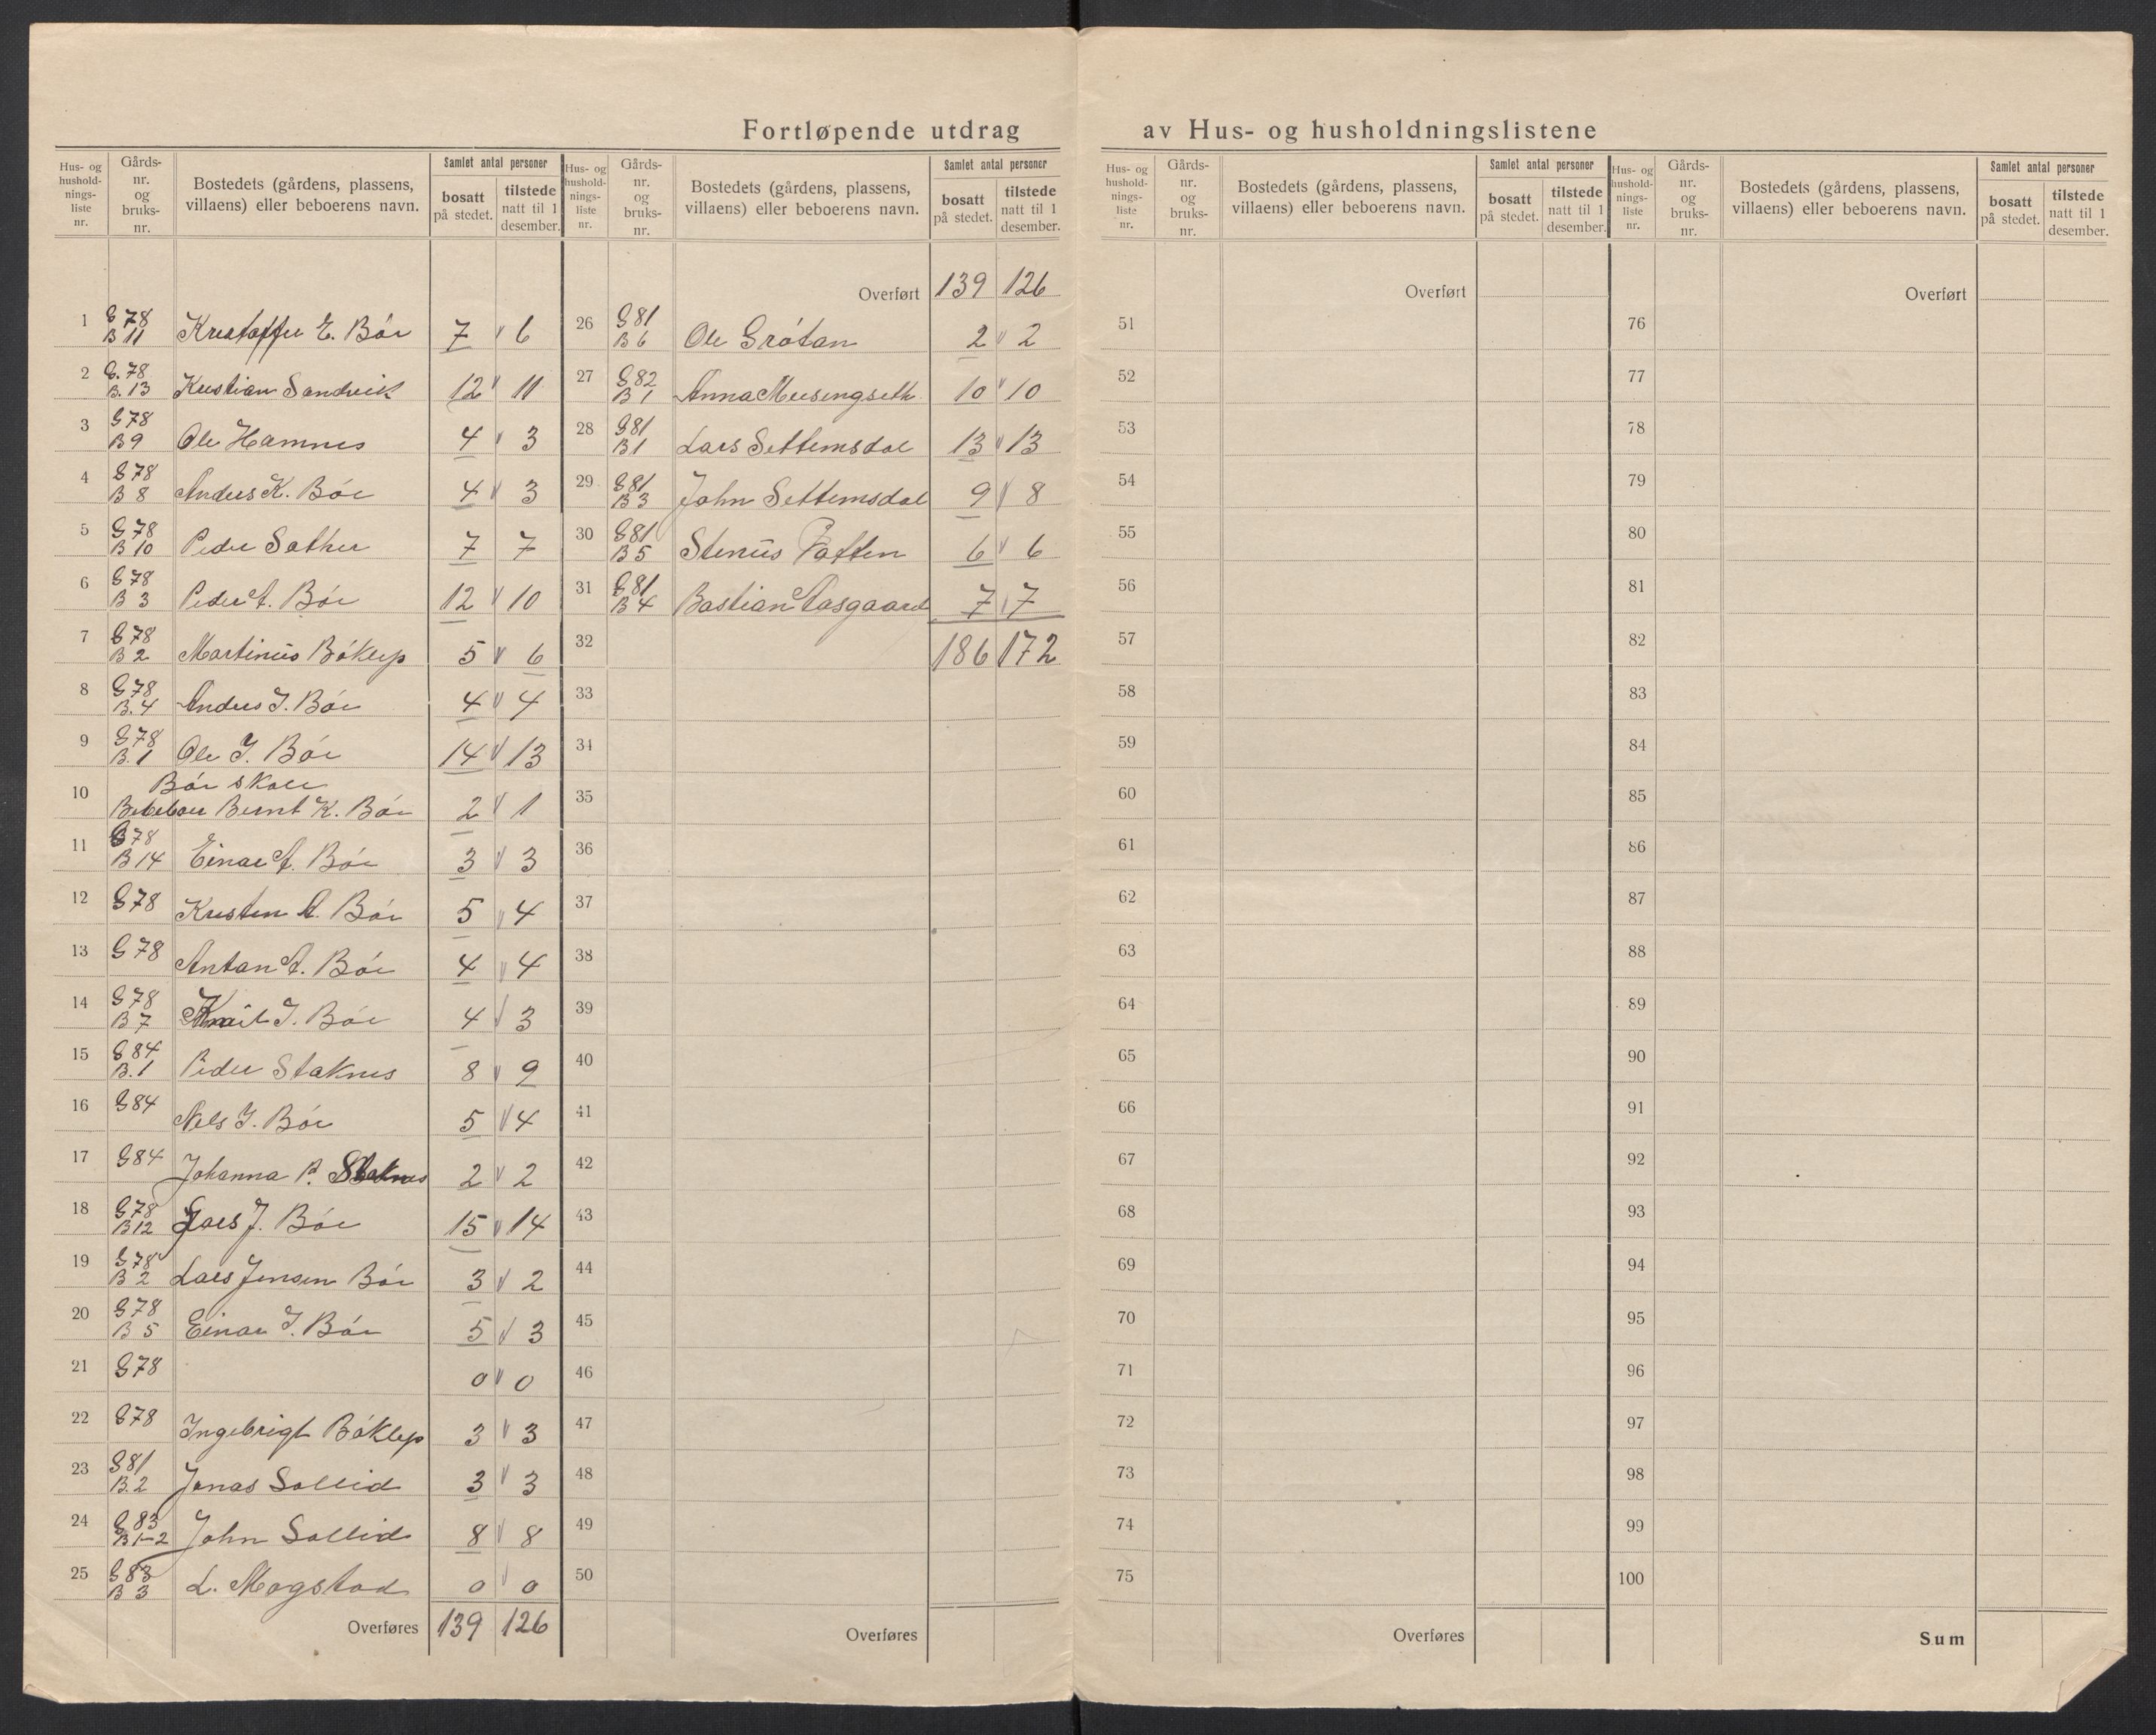 Fortløpende utdrag av Hus- og husholdningslistene
Hus- og hushold- nings- liste nr. | Gårds- nr. og bruks- nr. | Bostedets (gårdens, plassens, villaens) eller beboerens navn. | Samlet antal personer | bosatt på stedet. | tilstede natt til 1 desember.
1 G 78 B 11 Kristoffer E. Bøe 7 6
2 G. 78 B. 13 Kristian Sandvik 12 11
3 G 78 B 9 Ole Hamnes 4 3
4 G 78 B 8 Anders K. Bøe 4 3
5 G 78 B 10 Peder Sæther 7 7
6 G 78 B 3 Peder A. Bøe 12 10
7 G 78 B 2 Martinus Bøklep 5 6
8 G 78 B. 4 Anders J. Bøe 4 4
9 G 78 B. 1 Ole J. Bøe 14 13
10 Bøe skole
Beboer Bernt K. Bøe 2 1
11 G 78 B 14 Einar A. Bøe 3 3
12 G 78 Kristen A. Bøe 5 4
13 G 78 Anton A. Bøe 4 4
14 G 78 B 7 J. Bøe 4 3
15 G 84 B. 1 Peder Staknes 8 9
16 G 84 Nels J. Bøe 5 4
17 G 84 Johanna P. Staknes 2 2
18 G 78 B 12 Lars J. Bøe 15 14
19 G 78 B 2 Lars Jensen Bøe 3 2
20 G 78 B 5 Einar J. Bøe 5 3
21 G 78 0 0
22 G 78 Ingebrigt Bøklep 3 3
23 G 81 B. 2 Jonas Sollid 3 3
24 G 83 B 1-2 John Sollid 8 8
25 G 83 B 3 L. Mogstad 0 0
Overføres 139 126
Hus- og hushold- nings- liste nr. | Gårds- nr. og bruks- nr. | Bostedets (gårdens, plassens, villaens) eller beboerens navn. | Samlet antal personer | bosatt på stedet. | tilstede natt til 1 desember.
Overført 139 126
26 G 81 B 6 Ole Grøtan 2 2
27 G 82 B 1 Anna Meesingseth 10 10
28 G 81 B 1 Lars Settemsdal 13 13
29 G 81 B 3 John Settemsdal 9 8
30 G 81 B 5 Stenus Vatten 6 6
31 G 81 B 4 Bastian Aasgaard 7 7
32 186 172
33
34
35
36
37
38
39
40
41
42
43
44
45
46
47
48
49
50
Overføres
Hus- og hushold- nings- liste nr. | Gårds- nr. og bruks- nr. | Bostedets (gårdens, plassens, villaens) eller beboerens navn. | Samlet antal personer | bosatt på stedet. | tilstede natt til 1 desember.
Overført
51
52
53
54
55
56
57
58
59
60
61
62
63
64
65
66
67
68
69
70
71
72
73
74
75
Overføres
Hus- og hushold- nings- liste nr. | Gårds- nr. og bruks- nr. | Bostedets (gårdens, plassens, villaens) eller beboerens navn. | Samlet antal personer | bosatt på stedet. | tilstede natt til 1 desember.
Overført
76
77
78
79
80
81
82
83
84
85
86
87
88
89
90
91
92
93
94
95
96
97
98
99
100
Sum